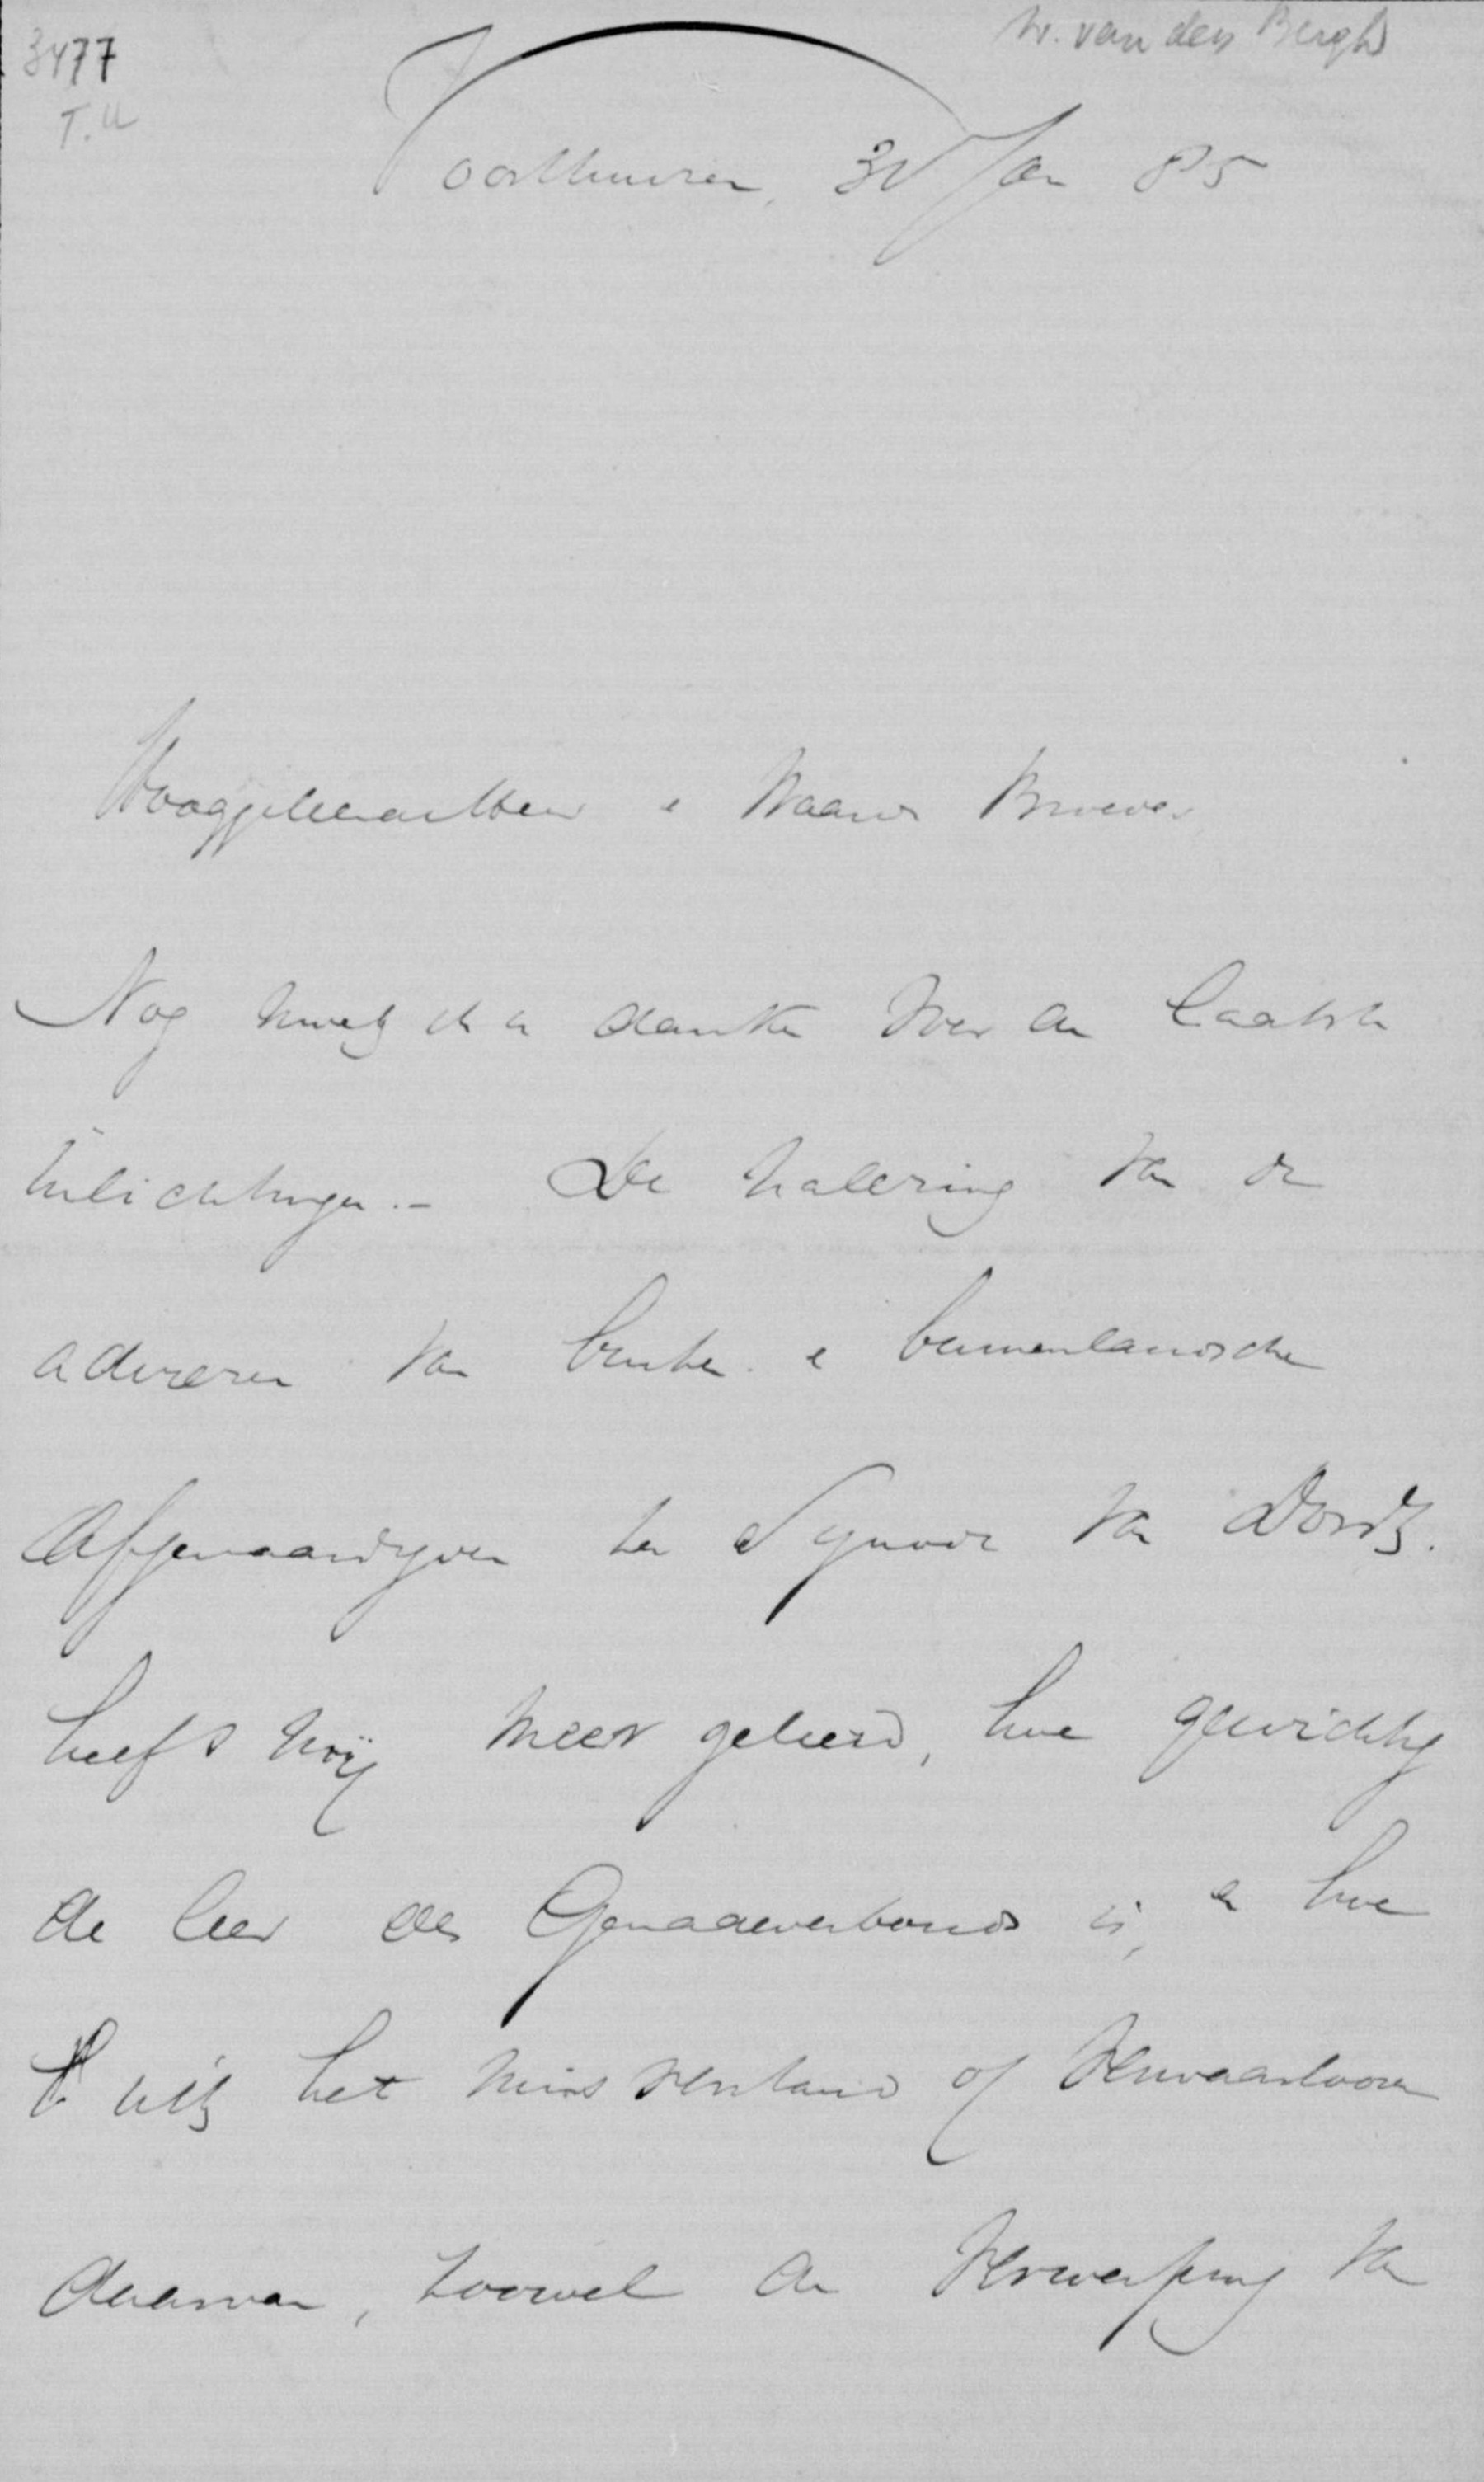 W. van den Bergh
3477
T.U
Voorthuizen, 30 Jan 85
Hooggeleerde en Waarde Broeder
Nog moet ik u danken voor de laatste
inlichtingen. - De nalezing van de
adviezen van buiten- e binnenlandsche
Afgevaardigden ter Synode van Dordt.
heeft mij meer geleerd, hoe gewichtig
de leer des Genadeverbonds is, en hoe
uit het misverstand of verwaarloozen
daarvan, zoowel de verwerping van